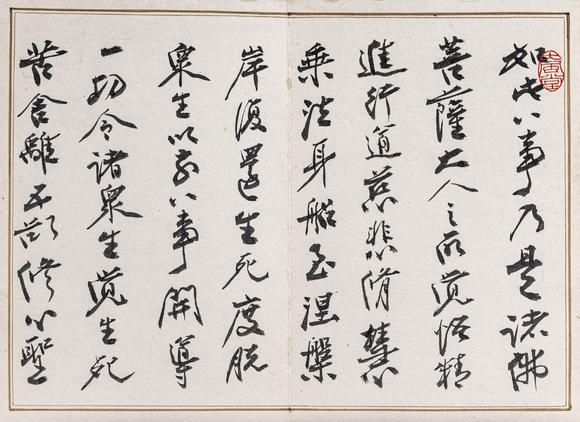 如此八事乃是諸佛
菩薩大人之所覺悟精
進行道慈悲脩慧
乘法身船至涅槃
岸復還生死度脱
衆生以前八事開導
一切令諸衆生覺生死
苦舍離五欲修心聖